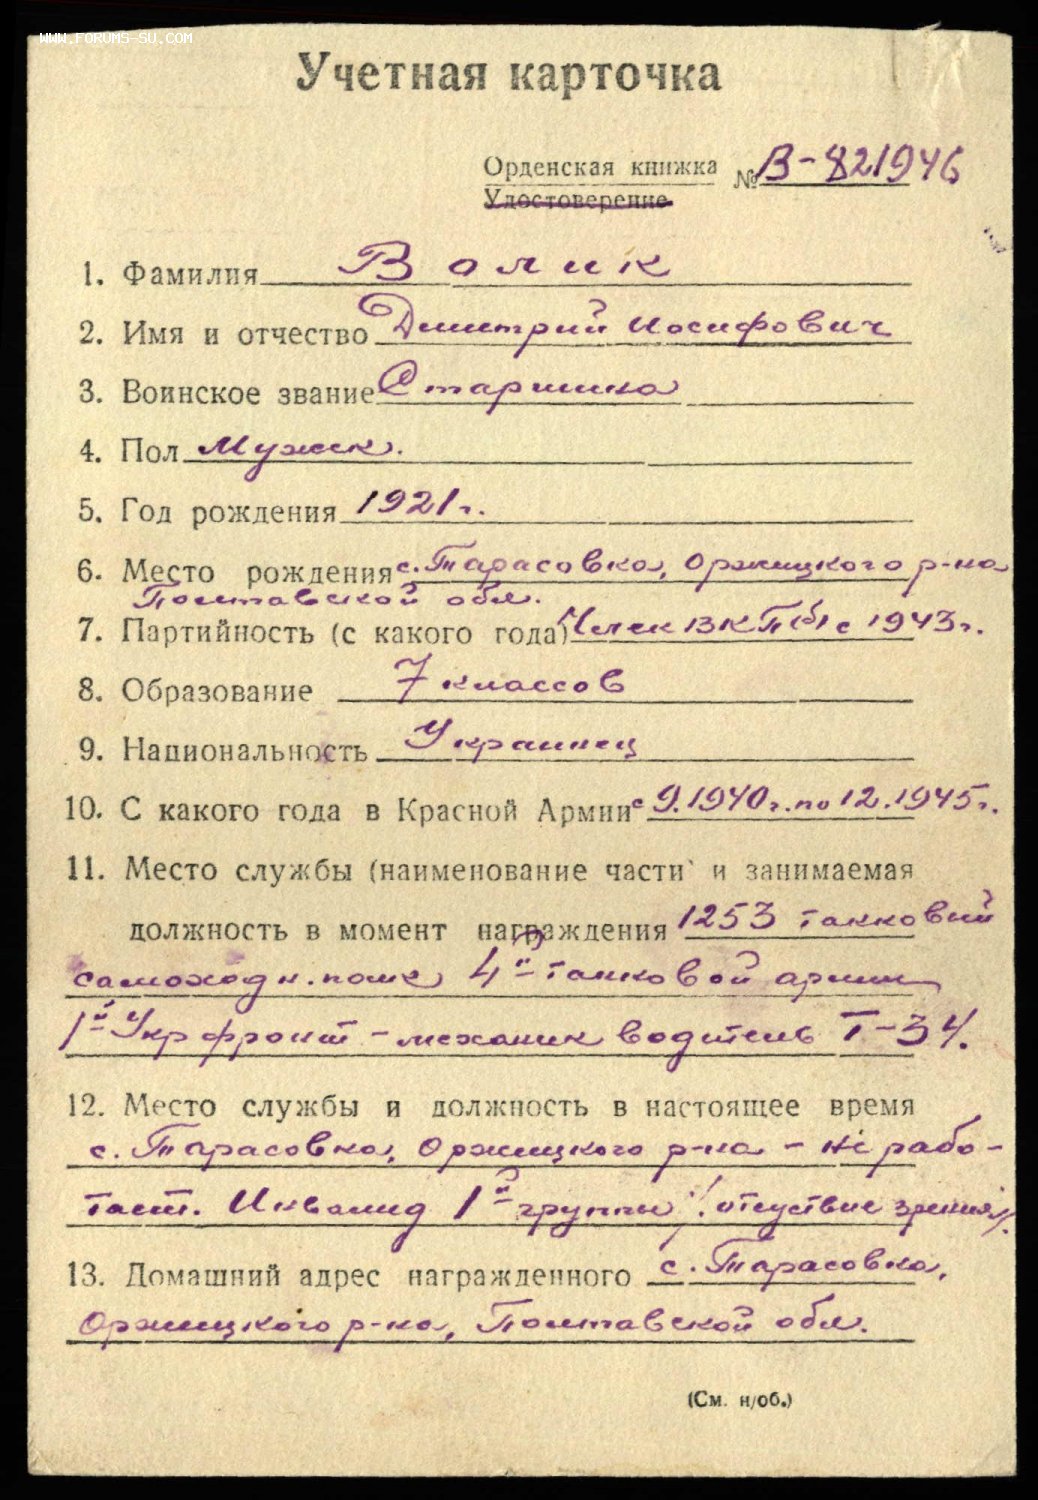 WWW.FORUMS-SU.COM
Учетная карточка
Орденская книжка № В-821946
Удостоверение
1. Фамилия Волик
2. Имя и отчество Дмитрий Иосифович
3. Воинское звание Старшина
4. Пол Мужск.
5. Год рождения 1921 г.
6. Место рождения с. Тарасовка, Оржицкого р-на
Полтавской обл.
7. Партийность (с какого года) Член ВКП(б) с 1943 г.
8. Образование 7 классов
9. Национальность Украинец
10. С какого года в Красной Армии с 9.1940 г. по 12.1945 г.
11. Место службы (наименование части и занимаемая
должность в момент награждения 1253 танковый
самоходн. полк 4й танковой армии
1й Укр фронт - механик водитель Т-34.
12. Место службы и должность в настоящее время
с. Тарасовка, Оржицкого р-на - не рабо-
тает. Инвалид 1й группы /отсуствие зрения/.
13. Домашний адрес награжденного с. Тарасовка,
Оржицкого р-на, Полтавской обл.
(См. н/об.)